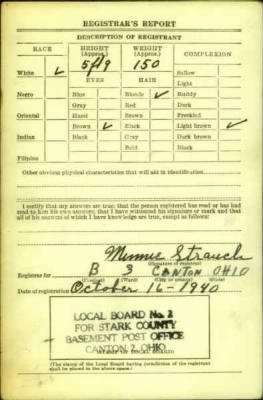 REGISTRAR'S REPORT
DESCRIPTION OF REGISTRANT
RACE HEIGHT (Approx.) WEIGHT (Approx.) COMPLEXION
5ft9 150
White ✓ EYES HAIR Sallow
Light
Negro Blue Blonde ✓ Ruddy
Gray Red Dark
Oriental Hazel Brown Freckled
Brown ✓ Black Light brown ✓
Indian Black Gray Dark brown
Bald Black
Filipino
Other obvious physical characteristics that will aid in identification
I certify that my answers are true; that the person registered has read or has had
read to him his own answers; that I have witnessed his signature or mark and that
all of his answers of which I have knowledge are true, except as follows:
Minnie Strauch
(Signature of registrar)
Registrar for B 3 CANTON OHIO
(Precinct) (Ward) (City or county) (State)
Date of registration October 16-1940
LOCAL BOARD No. 2
FOR STARK COUNTY
BASEMENT POST OFFICE
CANTON 2, OHIO
(The stamp of the Local Board having jurisdiction of the registrant
shall be placed in the above space.)